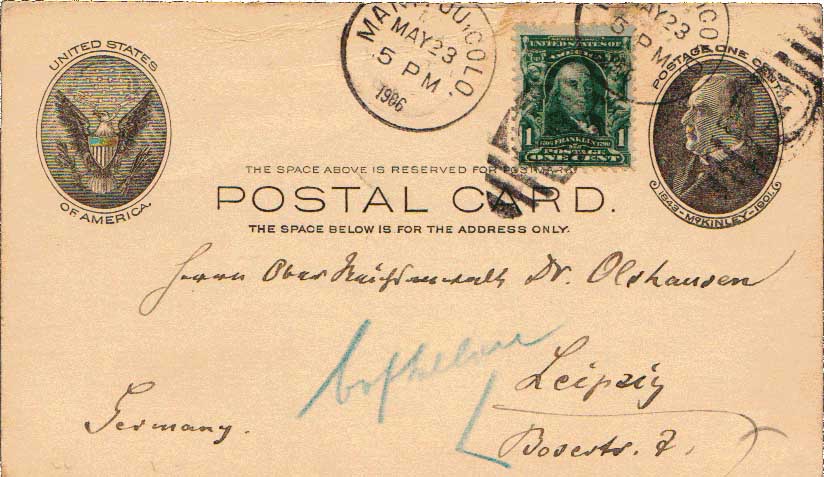 UNITED STATES
OF AMERICA.
MAY 23
5 PM
1906
COLO.
MAY 23
5 PM
COLO
UNITED STATES OF
AMERICA
1 1
1706 FRANKLIN 1790
POSTAGE
ONE CENT
POSTAGE ONE CENT.
1843-McKINLEY-1901.
THE SPACE ABOVE IS RESERVED FOR POSTMARK.
POSTAL CARD.
THE SPACE BELOW IS FOR THE ADDRESS ONLY.
Herrn Ober Reichsanwalt Dr. Olshausen
Leipzig
Germany.
Bosestr. 7.